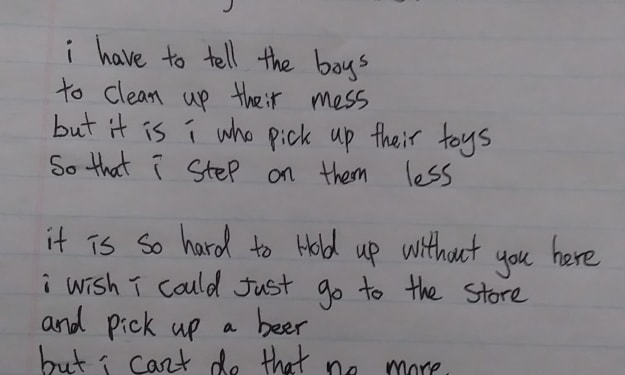 i have to tell the boys
to clean up their mess
but it is i who pick up their toys
So that i step on them less
it is so hard to Hold up without you here
i wish i could Just go to the store
and pick up a beer
but i can't do that no more.